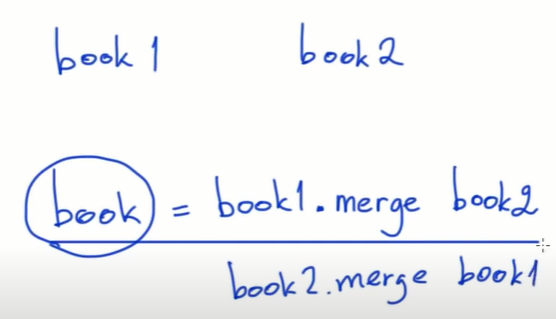 book 1 book 2
book = book1.merge book2
book2.merge book1